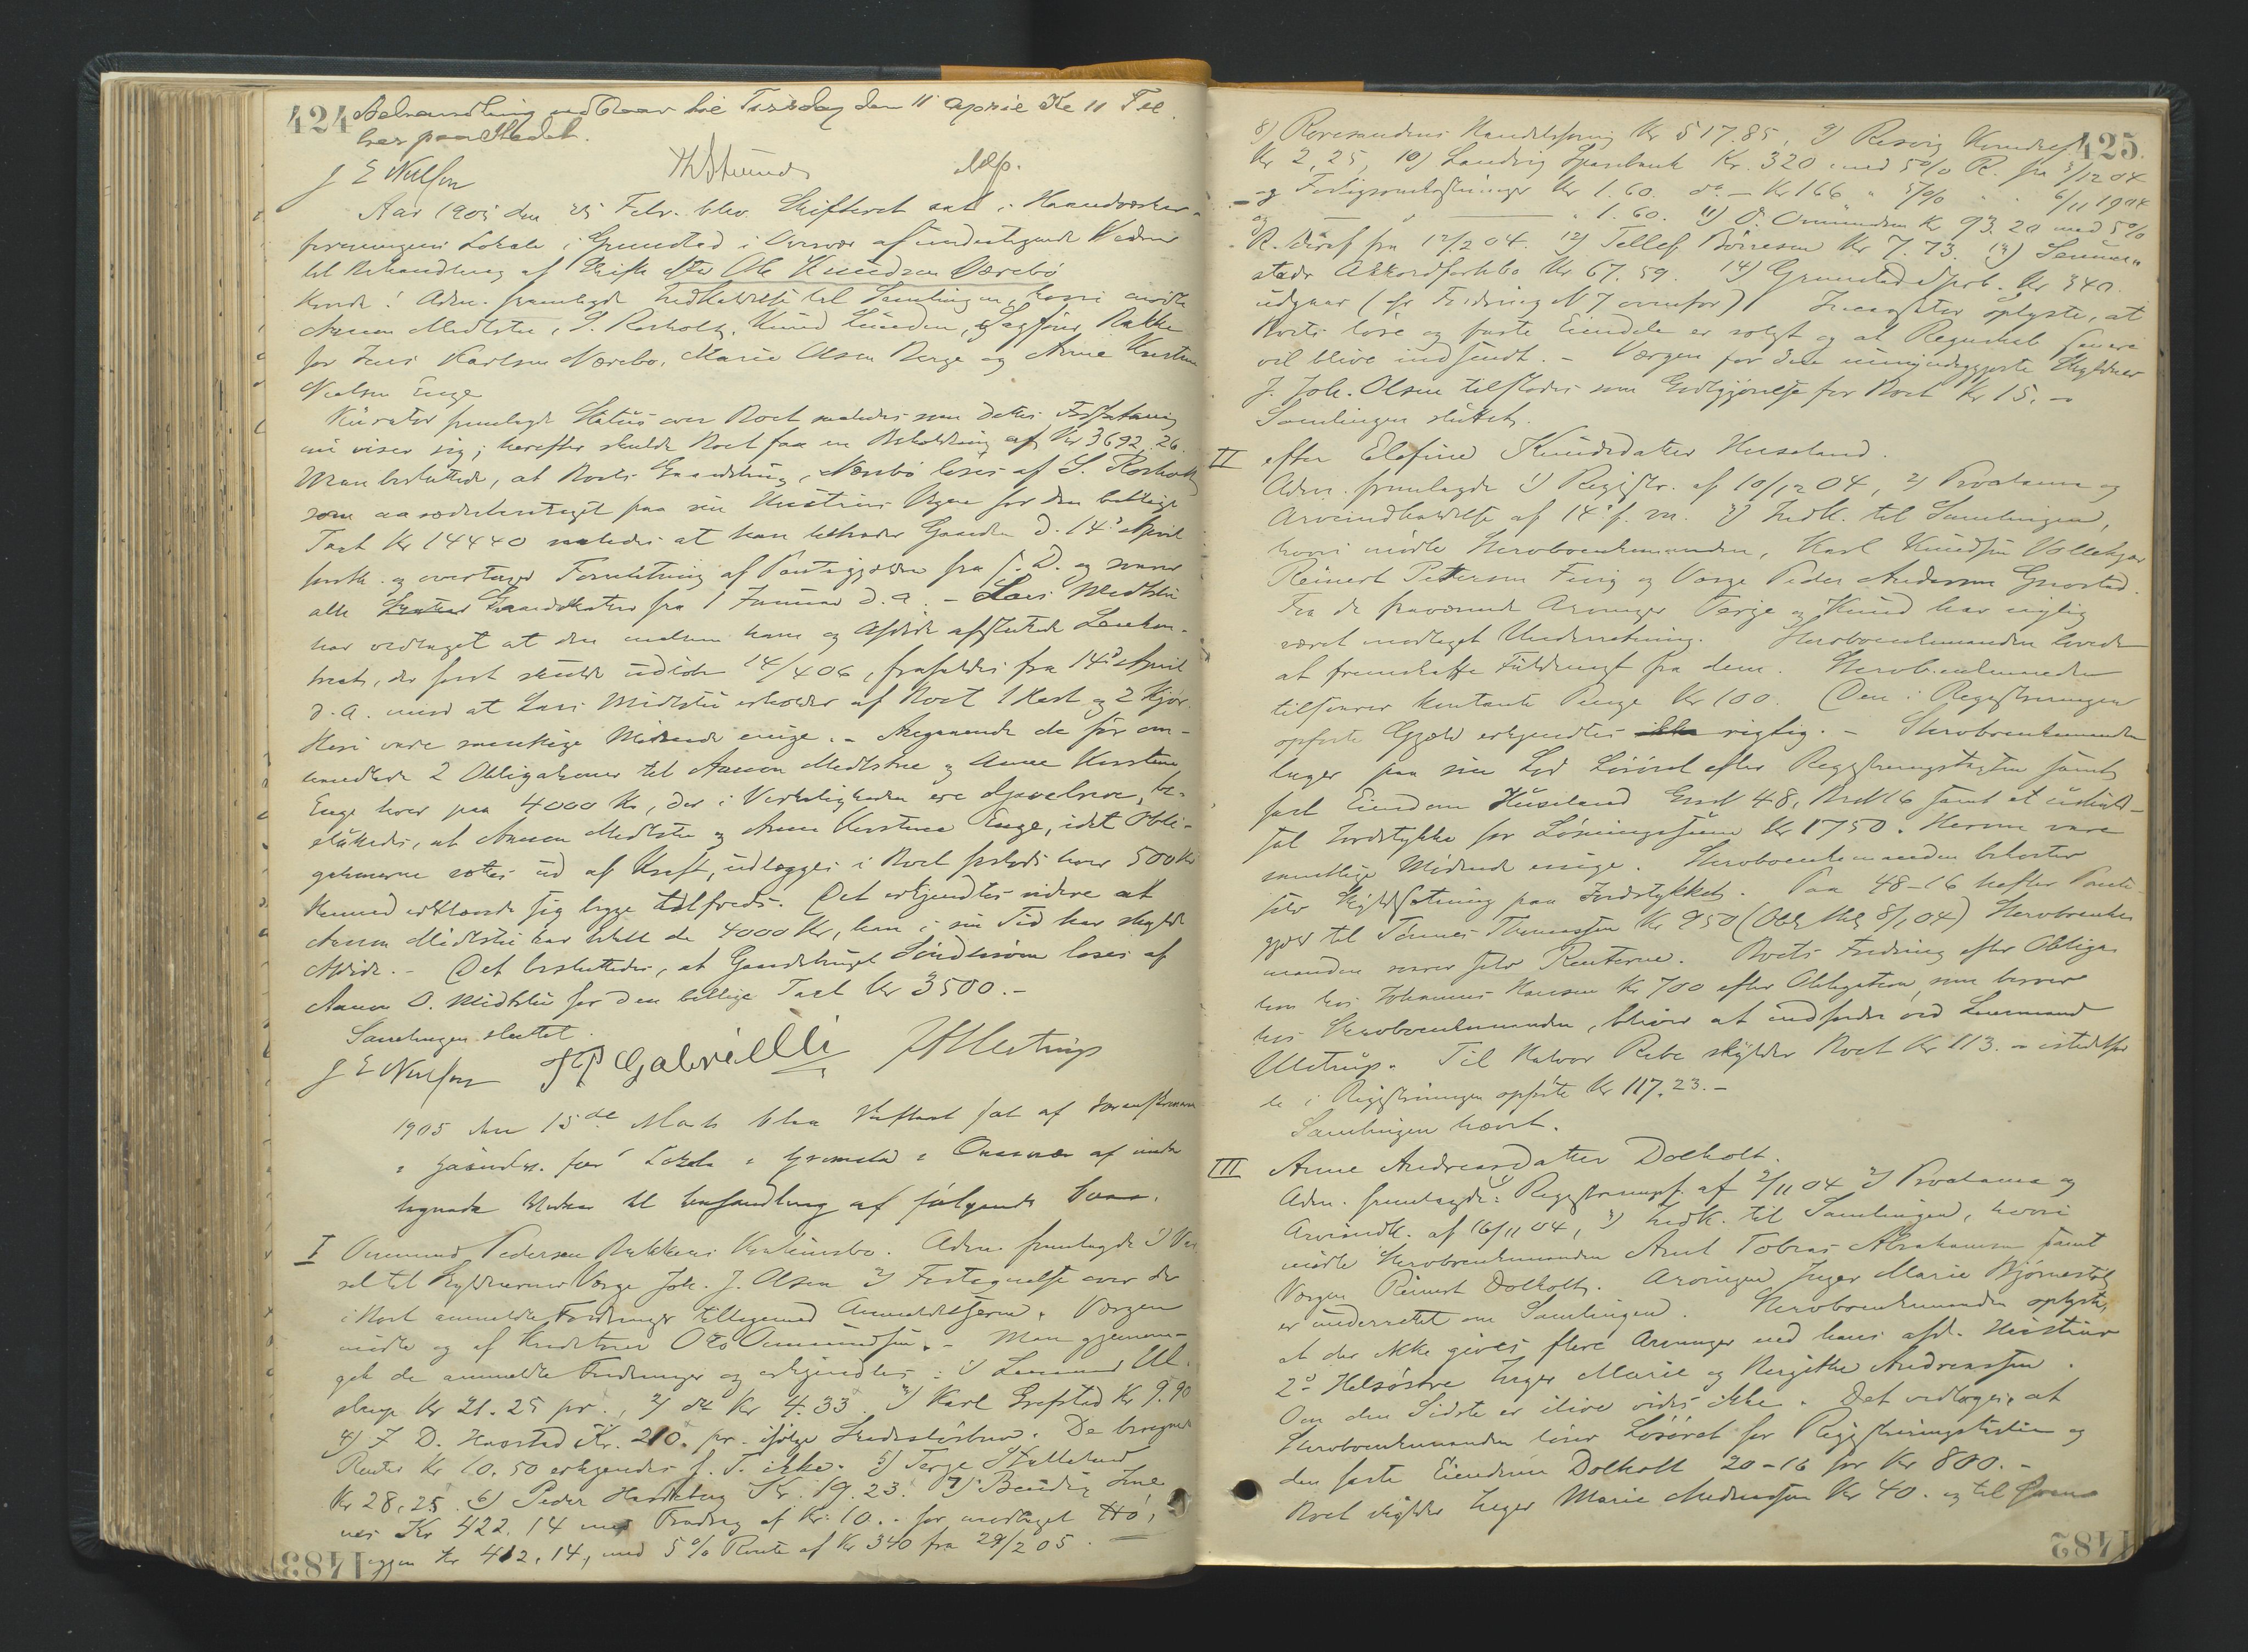 424 Behandling udsaar til Tirsdag den 11 April Kl 11 Fm
her paa Stedet.
J E Nielsen
Aar 1905 den 25 Febr. blev Skifteret sat i Haandværker-
foreningens Lokale i Grimstad i Overvær af undertegnede Vidner
til Behandling af Skifte efter Ole Knudsen Nærebø
Konst: Adm. fremlagde Indkaldelse til Samlingen, hvori mødte
Aanon Midtstue, S. Rosholt, Knud Lunden, Sagfører Bakke
for Jens Karlsen Nærebø, Marie Olsen Berge og Anne Kirstine
Nielsen Enge
Kurator fremlagde Status over Boet saaledes som dettes Forfatning
nu viser sig; herefter skulde Boet faa en Beholdning af Kr 3692.26.
Man besluttede, at Boets Gaardsbrug, Nærebø løses af S. Rosholt
som aasædesberettiget paa sin Hustrues Vegne for den billige
Taxt Kr 14440 saaledes at han tiltræder Gaarden d. 14de April
førstk. og overtager Forrentning af Pantegjælden fra s. D. og svarer
alle Gaardskatter fra 1 Januar d. a. - Lars Midtstue
har vedtaget at den mellem ham og Afdøde afsluttede Leiekon-
trakt, der først skulde udløbe 14/4 06, frafaldes fra 14de April
d. a. mod at Lars Midtstue erholder af Boet 1 Hest og 2 Kjør.
Heri vare samtlige Mødende enige. - Angaaende de før om-
handlede 2 Obligationer til Aanon Midtstue og Anne Kirstine
Enge hver paa 4000 Kr, der i Virkeligheden ere Gavebreve, be-
sluttedes, at Aanon Midtstue og Anne Kirstine Enge, idet Obli-
gationerne sættes ud af Kraft, udlægges i Boet forlods hver 500 Kr
Hermed erklærede sig begge tilfreds. Det erkjendtes videre at
Aanon Midtstue har betalt de 4000 Kr, han i sin Tid har skyldt
Afdøde. - Det besluttedes, at Gaardsbruget løses af
Aanon O. Midtstue for den billige Taxt Kr 3500.-
Samlingen sluttet.
J E Nielsen
1905 den 15de Marts blev Skifteret sat af
i Haandv. for. Lokale i Grimstad i Overvær af under
tegnede Vidner til Behandling af følgende Boer.
I Ommund Pedersen Bakkens Konkursbo. Adm. fremlagde 1)
sel til Skyldnerens Værge Joh. J. Olsen 2) Fortegnelse over de
i Boet anmeldte Fordringer tilligemed Anmeldelserne. Værgen
mødte og af Kreditorer O Ommundsen. - Man gjennem-
gik de anmeldte Fordringer og erkjendtes: 1) Lensmand Ul-
strup Kr 21.25 pr., 2) do Kr 4.33. 3) Karl Grefstad Kr 9.90
4) J. D. Haastad Kr. 210. pr. ifølge Skadesløsbrev. De beregnede
Renter Kr 10.50 erkjendes f. T. ikke. 5) Terje Stalleland
Kr 28.25. 6) Peder Kr. 19.23. 7)
nes Kr 422.14 med Fradrag af Kr. 10. - for modtaget Hø,
igjen Kr 412.14, med 5% Rente af Kr 340 fra 28/2 05.
11483
425.
8) Roresandens Handelsforening Kr 517.85, 9) Resvig
Kr 2,25, 10) Landvig Sparebank Kr. 320 med 5% R. fra 3/12 04
og Forligsomkostninger Kr 1.60. do - Kr 166 " 5% " " 6/11 1904
og " 1.60. 11) O. Ommundsen Kr 93.20 med 5%
R. deraf fra 12/2 04. 12) Tellef Børresen Kr 7.73. 13)
stads Akkordforlibo Kr 67.59. 14) Grimstad Sprb. Kr 340.
udgaar (se Fordring N 7 ovenfor) oplyste, at
Boets løse og faste Eiendele er solgt og at Regnskab senere
vil blive indsendt. - Værgen for den umyndiggjorte Skyldner
J. Joh. Olsen tilstodes som Godtgjørelse for Boet Kr 15. -
Samlingen sluttet.
II efter Elefine Knudsdatter Huseland.
Adm. fremlagde 1) Registr. af 10/12 04, 2) Proclama og
Arveindkaldelse af 14de f. m. 3) Indk. til Samlingen,
hvori mødte Stervboenkemanden, Karl Knudsen Vollekjær
Reinert Pettersen Fevig og Værge Peder Andersen Grostad.
Fra de fraværende Arvinger Terje og Knud har rigtig
været modtaget Underretning. Stervboenkemanden lovede
at fremskaffe Fuldmagt fra dem. Stervboenkemanden
tilsvarer kontante Penge Kr 100. Den i Registreringen
opførte Gjæld erkjendtes rigtig. - Stervboenkemanden
tager paa sin Lod Løsøret efter Registreringstaxten samt
fast Eiendom Huseland Gno 48, Bno 16 samt et uskyld-
sat Jordstykke for Løsningssum Kr 1750. Herom vare
samtlige Mødende enige. Stervboenkemanden bekoster
selv Skyldsætning paa Jordstykket. Paa 48-16 hefter Pante-
gjæld til Tønnes Thomassen Kr 950 (Obl thl 8/1 04) Stervboenke-
manden svarer selv Renterne. Boets Fordring efter Obliga-
tion hos Johannes Hansen Kr 700 efter Obligation, som beror
hos Stervboenkemanden, bliver at indfordre ved Lensmand
Ulstrup. Til Halvor Rabe skylder Boet Kr 113. - istedetfor
de i Registreringen opførte Kr 117.23. -
Samlingen hævet.
III Anne Andreasdatter Dolholt.
Adm. fremlagde: 1) Registreringsf. af 2/11 04 2) Proclama og
Arveindk. af 16/11 04, 3) Indk. til Samlingen, hvori
mødte Stervboenkemanden Arnt Tobias Abrahamsen samt
Værgen Reinert Dolholt. Arvingen Inger Marie Bjørnestøl
er underrettet om Samlingen. Stervboenkemanden oplyste,
at der ikke gives flere Arvinger end hans afd. Hustrues
2de Helsøstre Inger Marie og Bergithe Andreassen.
Om den Sidste er ilive vides ikke. Det vedtoges, at
Stervboenkemanden løser Løsøret for Registreringstaxten og
den faste Eiendom Dolholt 20-16 for Kr 800. -
Boet skylder Inger Marie Andreassen Kr 40. og til
11482